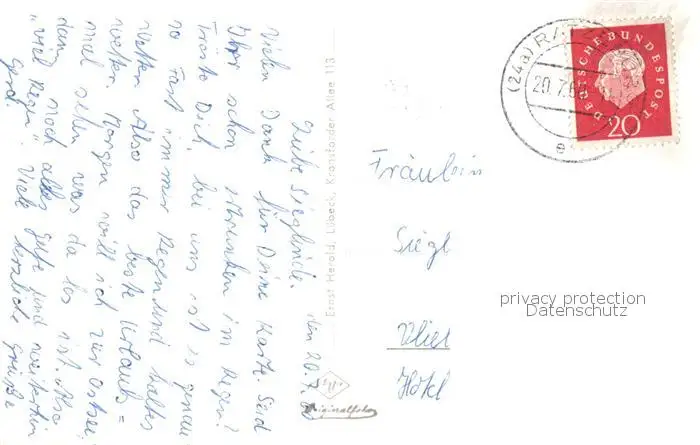 den 20.7.60
Liebe Sieglinde.
Vielen Dank für Deine Karte. Seid
Ihr schon ertrunken im Regen?
Tröste Dich, bei uns ist es genau
so. Fast immer Regen und kaltes
Wetter. Also das beste Urlaubs=
wetter. Morgen will ich zur Ostsee
mal sehen was da los ist. Also
dann noch alles gute und weiterhin
"viel Regen". Viele herzliche Grüße
Gerd.
Ernst Herold, Lübeck, Kronsforder Allee 113
Originalfoto
Fräulein
Siegl
Vliet
Hotel
(24a) RAT
20.7.60
e
DEUTSCHE BUNDESPOST
20
privacy protection
Datenschutz